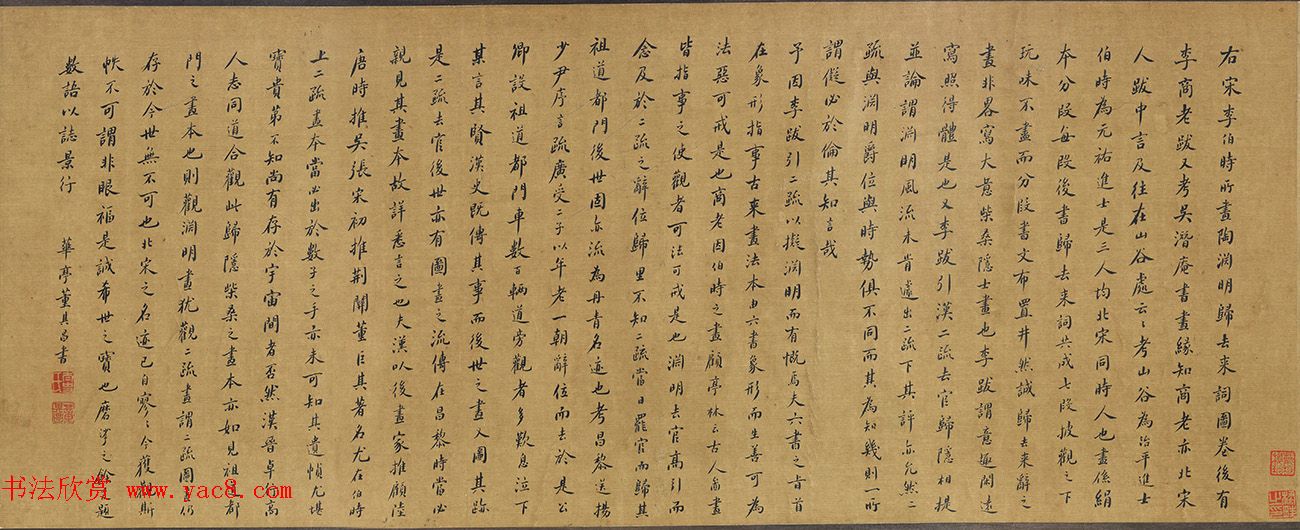 右宋李伯時所畫陶淵明歸去來詞圖卷後有
李商老跋又考吳潛庵書畫緣知商老亦北宋
人跋中言及往在山谷處云云考山谷為治平進士
伯時為元祐進士是三人均北宋同時人也畫係絹
本分段每段後書歸去來詞共成七段披觀之下
玩味不盡而分段書文布置井然誠歸去來辭之
畫非畧寫大意柴桑隱士畫也李跋謂意趣閑遠
寫照得體是也又李跋引漢二疏去官歸隱相提
並論謂淵明風流未肯遽出二疏下其評亦允然二
疏與淵明爵位與時勢俱不同而其為知幾則一所
謂儗必於倫其知言哉
予因李跋引二疏以擬淵明而有慨焉夫六書之旨首
在象形指事古來畫法本由六書象形而生善可為
法惡可戒是也商老因伯時之畫顧亭林云古人畵畫
皆指事之使觀者可法可戒是也淵明去官高引而
念及於二疏之辭位歸里不知二疏當日罷官而歸其
祖道都門後世固亦流為丹青名迹也考昌黎送楊
少尹序言疏廣受二子以年老一朝辭位而去於是公
卿設祖道都門車數百輛道旁觀者多歎息泣下
共言其賢漢史既傳其事而後世之畫又圖其跡
是二疏去官後世亦有圖畫之流傳在昌黎時當必
親見其畫本故詳悉言之也夫漢以後畫家推顧陸
唐時推吳張宋初推荊關董巨其著名尤在伯時
上二疏畫本當必出於數子之手亦未可知其遺幀尤堪
寶貴第不知尚有存於宇宙間者否然漢晉卓行高
人志同道合觀此歸隱柴桑之畫本亦如見祖道都
門之畫本也則觀淵明畫猶觀二疏畫謂二疏圖畫仍
存於今世無不可也北宋之名迹已自寥寥今獲斯
帙不可謂非眼福是誠希世之寶也磨挲之餘題
數語以誌景行
華亭董其昌書
书法欣赏 www.yac8.com